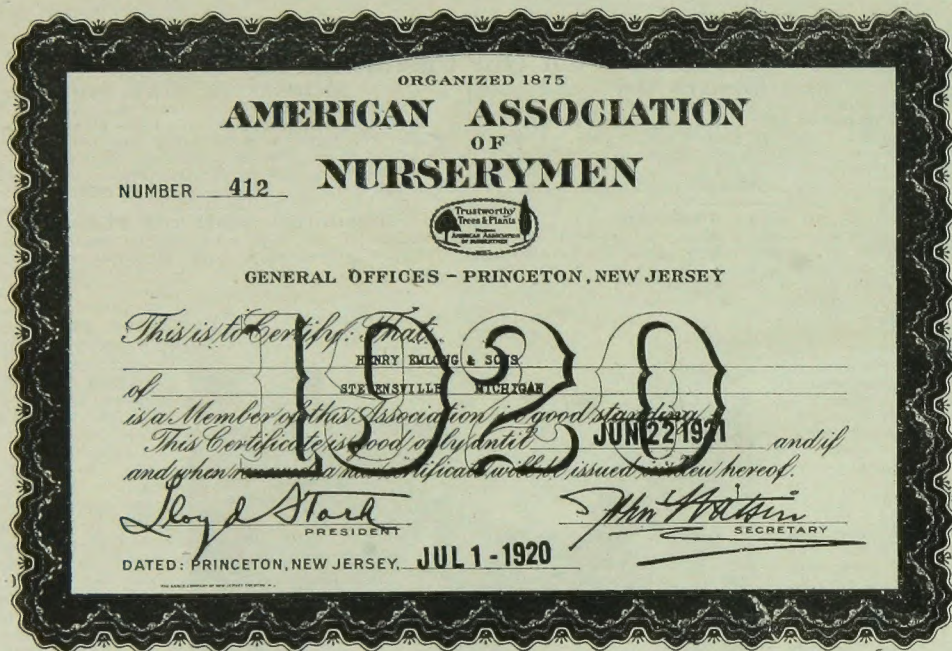 ORGANIZED 1875
AMERICAN ASSOCIATION
OF
NURSERYMEN
NUMBER 412
Trustworthy
Trees & Plants
AMERICAN ASSOCIATION
OF NURSERYMEN
GENERAL OFFICES - PRINCETON, NEW JERSEY
1920
This is to Certify: That
HENRY EMLONG & SONS
of STEVENSVILLE MICHIGAN
is a Member of this Association in good standing
This Certificate is good only until JUN 22 1921 and if
and when renewed a new certificate will be issued in lieu hereof.
Lloyd Stark
PRESIDENT
John Watson
SECRETARY
DATED: PRINCETON, NEW JERSEY, JUL 1 - 1920